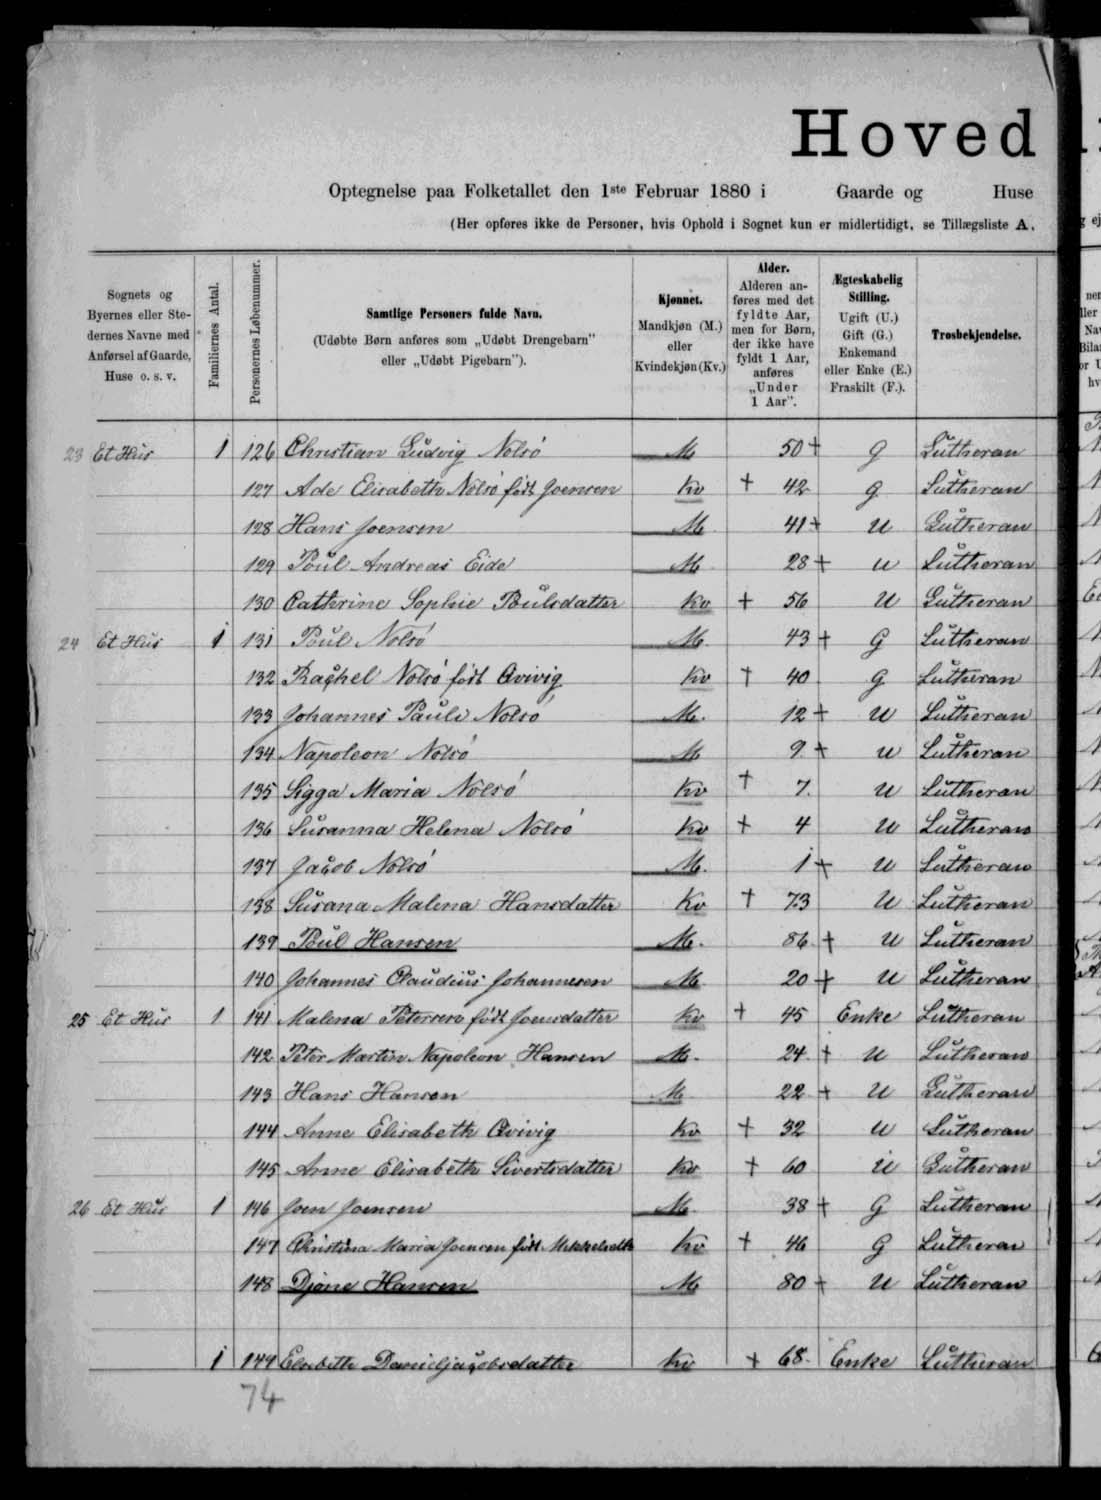 Hoved
Optegnelse paa Folketallet den 1ste Februar 1880 i Gaarde og Huse
(Her opføres ikke de Personer, hvis Ophold i Sognet kun er midlertidigt, se Tillægsliste A.
Sognets og Byernes eller Stedernes Navne med Anførsel af Gaarde, Huse o. s. v.
Familiernes Antal.
Personernes Løbenummer.
Samtlige Personers fulde Navn.
(Udøbte Børn anføres som „Udøbt Drengebarn" eller „Udøbt Pigebarn").
Kjønnet.
Mandkjøn (M.) eller Kvindekjøn (Kv.)
Alder.
Alderen anføres med det fyldte Aar, men for Børn, der ikke have fyldt 1 Aar, anføres „Under 1 Aar".
Ægteskabelig Stilling.
Ugift (U.) Gift (G.) Enkemand eller Enke (E.) Fraskilt (F.).
Trosbekjendelse.
23 Et Hus 1 126 Christian Ludvig Nolsö M 50 + G Lutheran
127 Ade Elisabeth Nolsö født Joensen Kv + 42 G Lutheran
128 Hans Joensen M 41 + U Lutheran
129 Poul Andreas Eide M 28 + U Lutheran
130 Cathrine Sophie Poulsdatter Kv + 56 U Lutheran
24 Et Hus 1 131 Poul Nolsö M 43 + G Lutheran
132 Rachel Nolsö født Qvivig Kv + 40 G Lutheran
133 Johannes Pauli Nolsö M. 12 + U Lutheran
134 Napoleon Nolsö M 9. + U Lutheran
135 Sigga Maria Nolsö Kv + 7. U Lutheran
136 Susanna Helena Nolsö Kv + 4 U Lutheran
137 Jacob Nolsö M. 1 + U Lutheran
138 Susana Malena Hansdatter Kv + 73 U Lutheran
139 Poul Hansen M. 86. + U Lutheran
140 Johannes Claudius Johannesen M 20 + U Lutheran
25 Et Hus 1 141 Malena Petersen født Joensdatter Kv + 45 Enke Lutheran
142 Peter Martin Napoleon Hansen M. 24. + U Lutheran
143 Hans Hanson M 22 + U Lutheran
144 Anne Elisabeth Qvivig Kv + 32 U Lutheran
145 Anne Elisabeth Sivertsdatter Kv + 60 U Lutheran
26 Et Hus 1 146 Joen Joensen M 38 + G Lutheran
147 Christina Maria Joensen født Mikkelsdtr Kv + 46 G Lutheran
148 Djone Hansen M 80 + U Lutheran
1 149 Elsebeth Danieljacobsdatter Kv + 68. Enke Lutheran
74